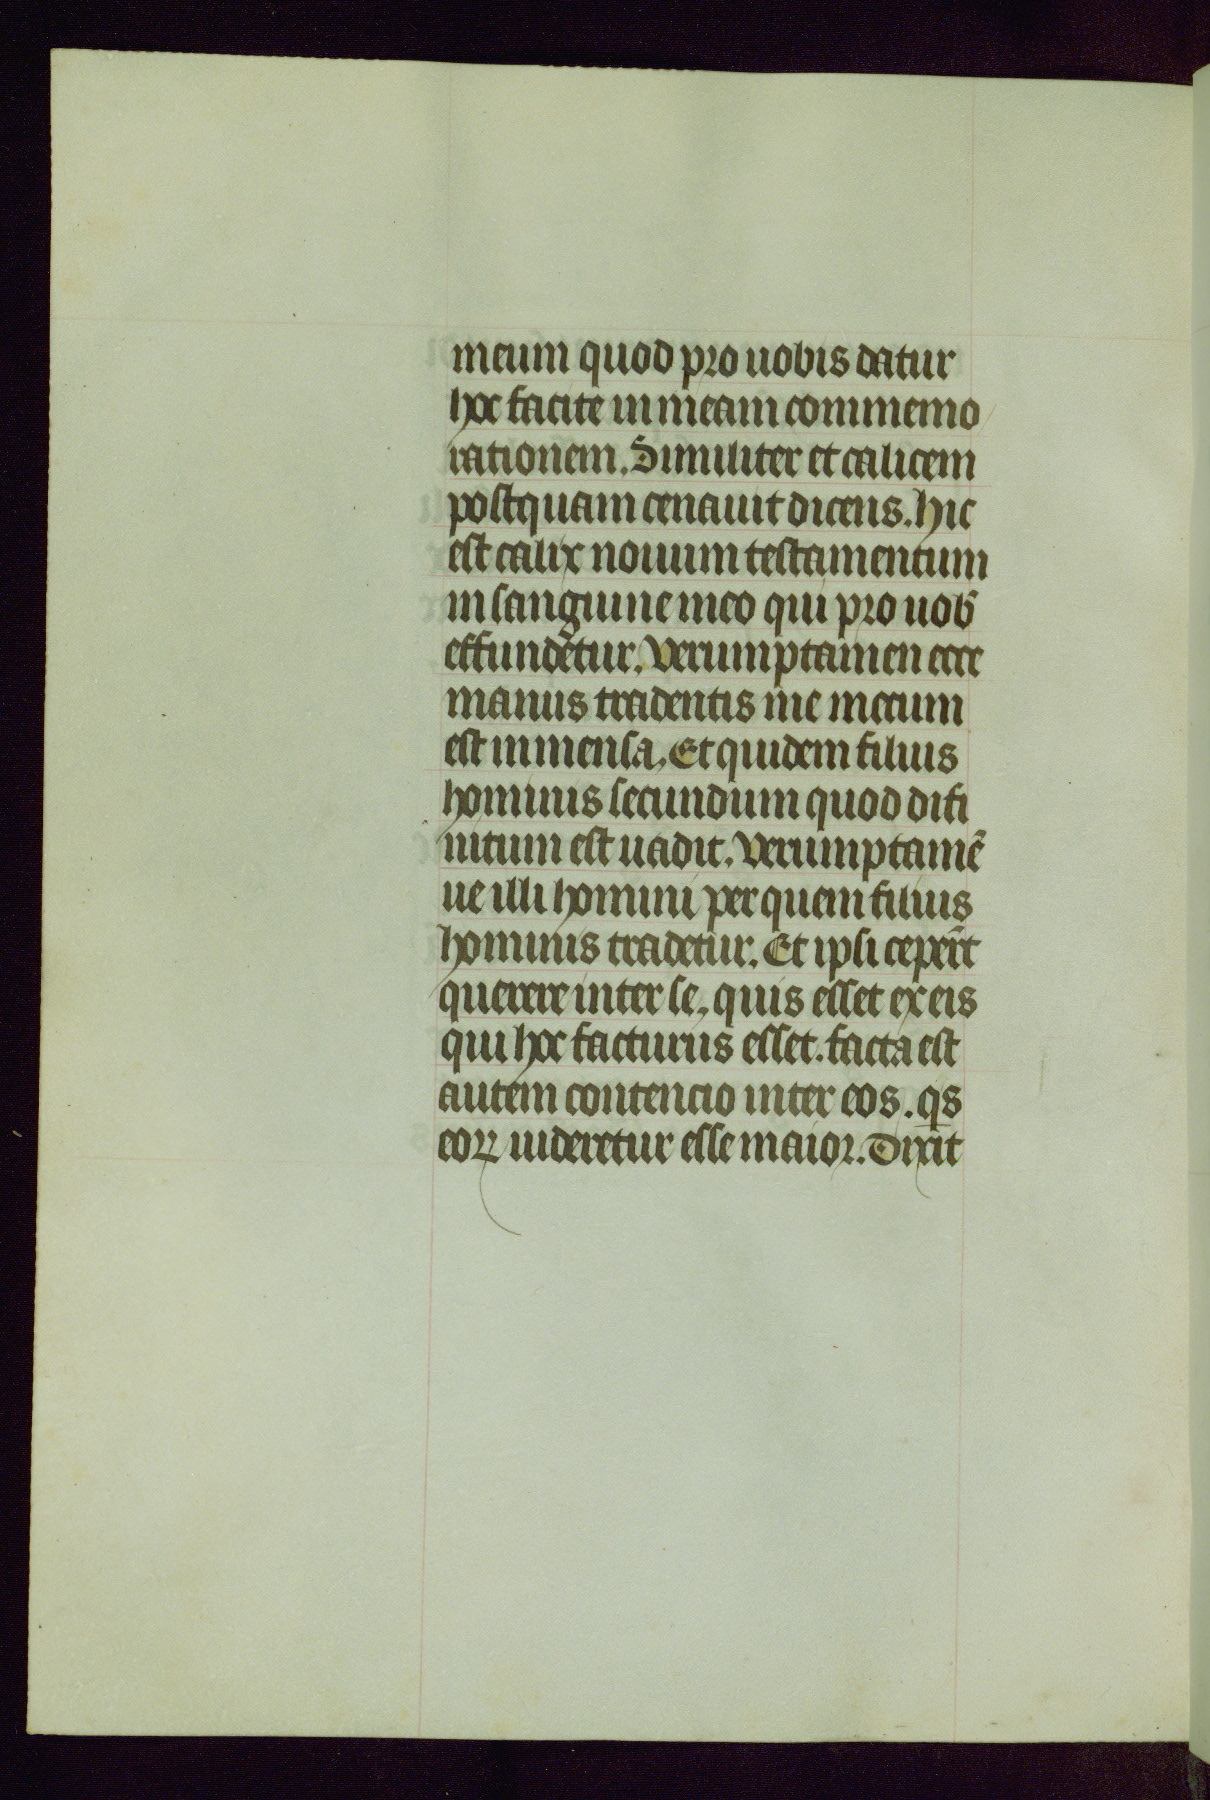 meum quod pro uobis datur
hoc facite in meam commemo
rationem. Similiter et calicem
postquam cenauit dicens. hic
est calix nouum testamentum
in sanguine meo qui pro uob̄
effundētur. Verumptamen ecce
manus tradentis me mecum
est in mensa. Et quidem filius
hominis secundum quod difi
nitum est uadit. Verumptamē
ue illi homini per quem filius
hominis tradetur. Et ipsi ceper̄t
querere inter se, quis esset ex eis
qui hoc facturus esset. facta est
autem contencio inter eos. qs
eoꝝ uideretur esse maior. Dixit